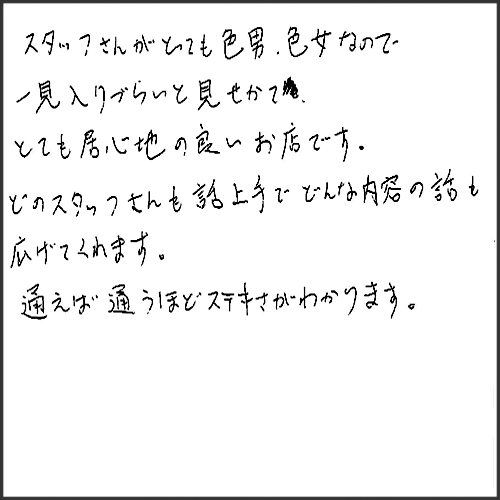 スタッフさんがとっても色男、色女なので
一見入りづらいと見せかて、
とても居心地の良いお店です。
どのスタッフさんも話上手でどんな内容の話も
広げてくれます。
通えば通うほどステキさがわかります。